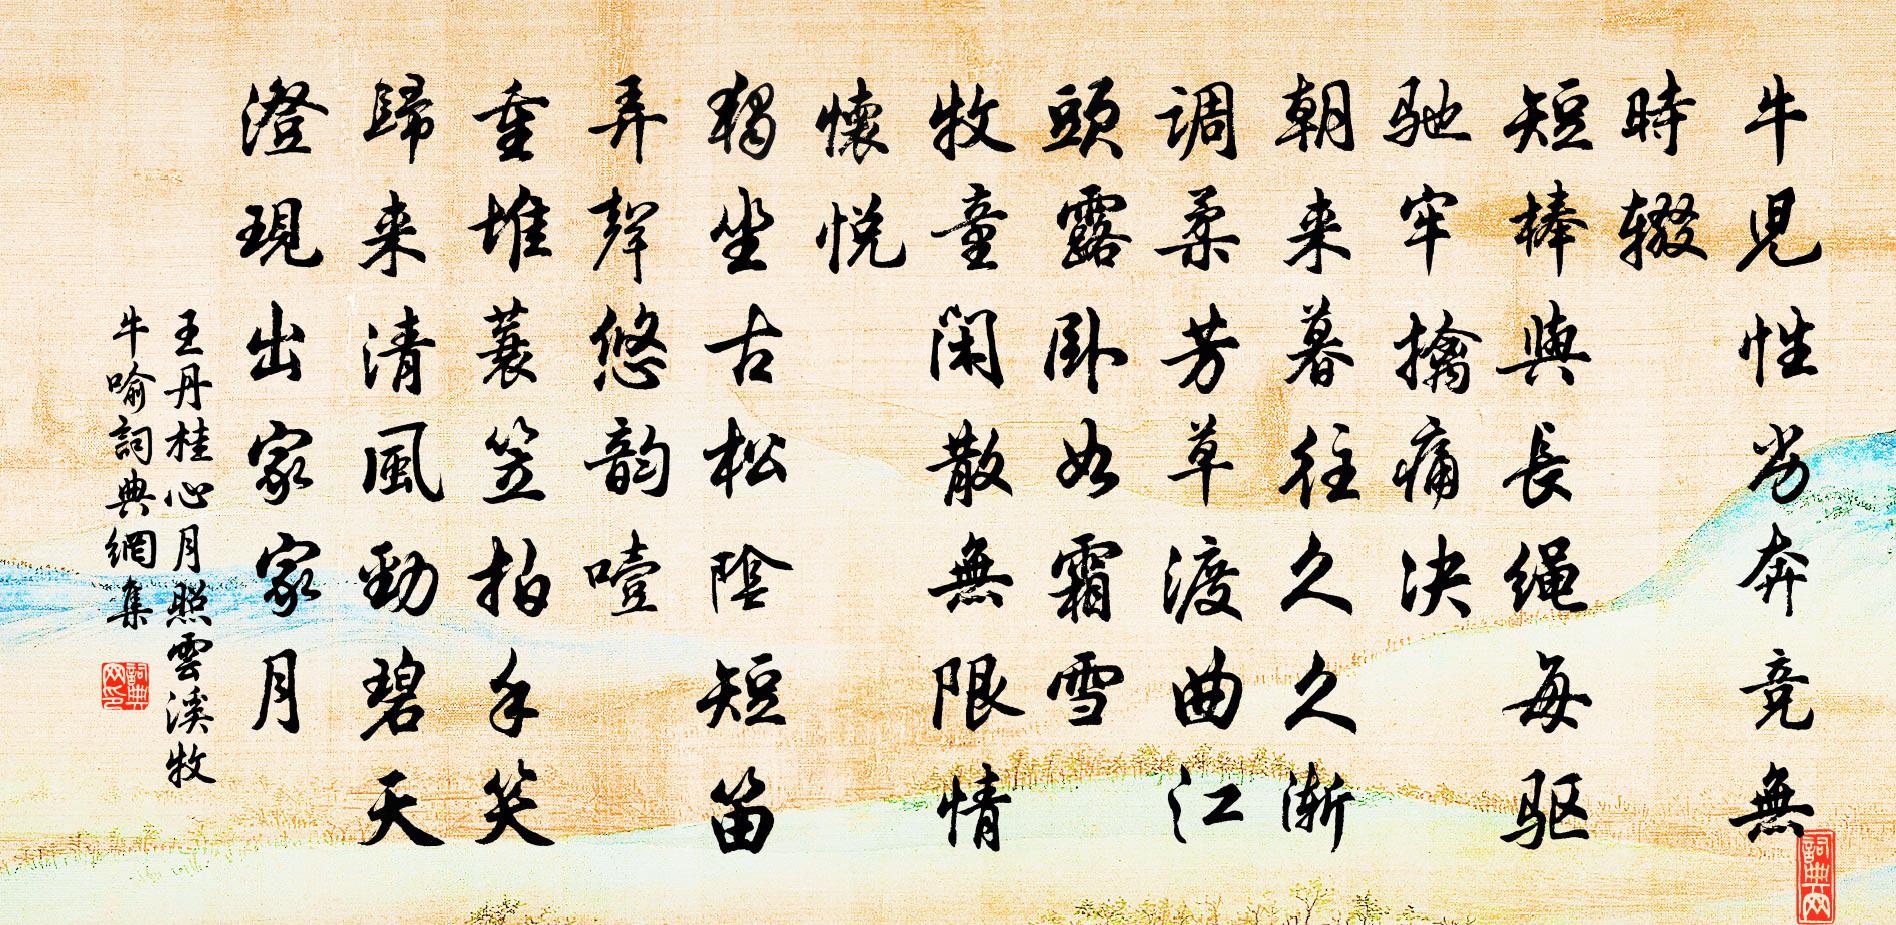 牛児性劣奔竞無
時辍
短棒與長绳每驱
驰牢擒痛决
朝来暮往久久渐
调柔芳草渡曲江
頭露卧如霜雪
牧童閑散無限情
懷悦
独坐古松陰短笛
弄聲悠韵噎
重堆蓑笠拍手笑
歸来清風勁碧天
澄現出家家月
王丹桂心月照雲溪牧
牛喻詞典網集
詞典网
詞典网印